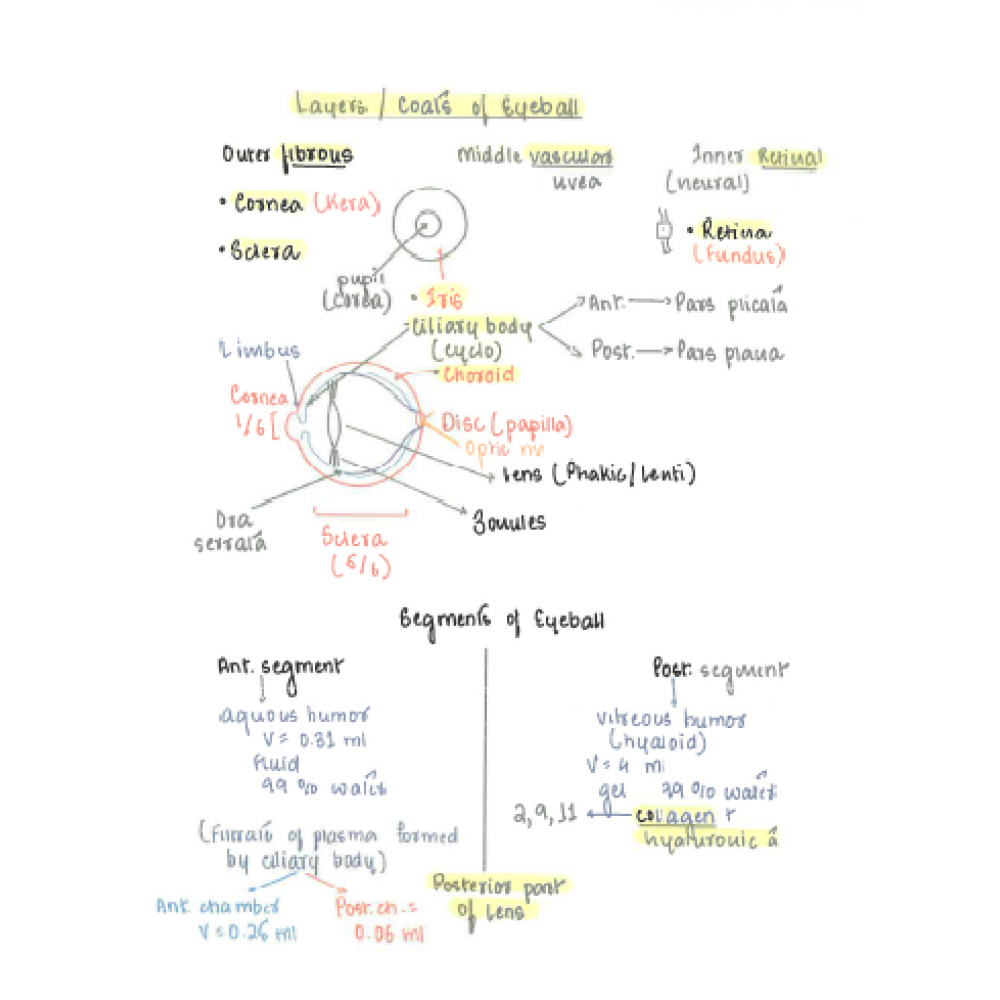 Layers / Coats of Eyeball
Outer fibrous
Middle vascular
uvea
Inner Retinal
(neural)
• Cornea (Kera)
• Sclera
• Retina
(Fundus)
pupil
(Corea)
• Iris
Ciliary body
(cyclo)
Ant. → Pars plicata
Post. → Pars plana
• Choroid
Limbus
Cornea
1/6 [
Disc (papilla)
Optic nv
Lens (Phakic/Lenti)
Zonules
Ora
serrata
Sclera
(5/6)
Segments of Eyeball
Ant. segment
Post. segment
aquous humor
V = 0.31 ml
Fluid
99 % water
vitreous humor
(hyaloid)
V = 4 ml
gel 99 % water
2, 9, 11 ← collagen +
hyalurouic a
(Filtrate of plasma formed
by ciliary body)
Ant. chamber
V = 0.25 ml
Post. ch. =
0.06 ml
Posterior part
of Lens